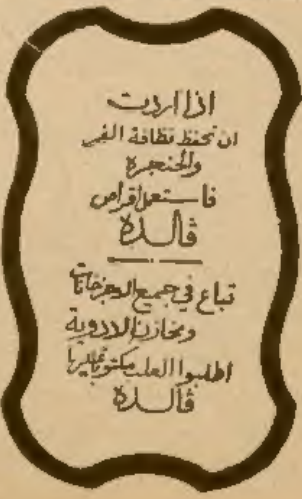 اذا اردت
ان تحفظ نظافة الفم
والحنجرة
فاستعمل اقراص
ڤالدة
تباع في جميع الاجزخانات
ومخازن الادوية
اطلبوا العلب مكتوبا عليها
ڤالدة